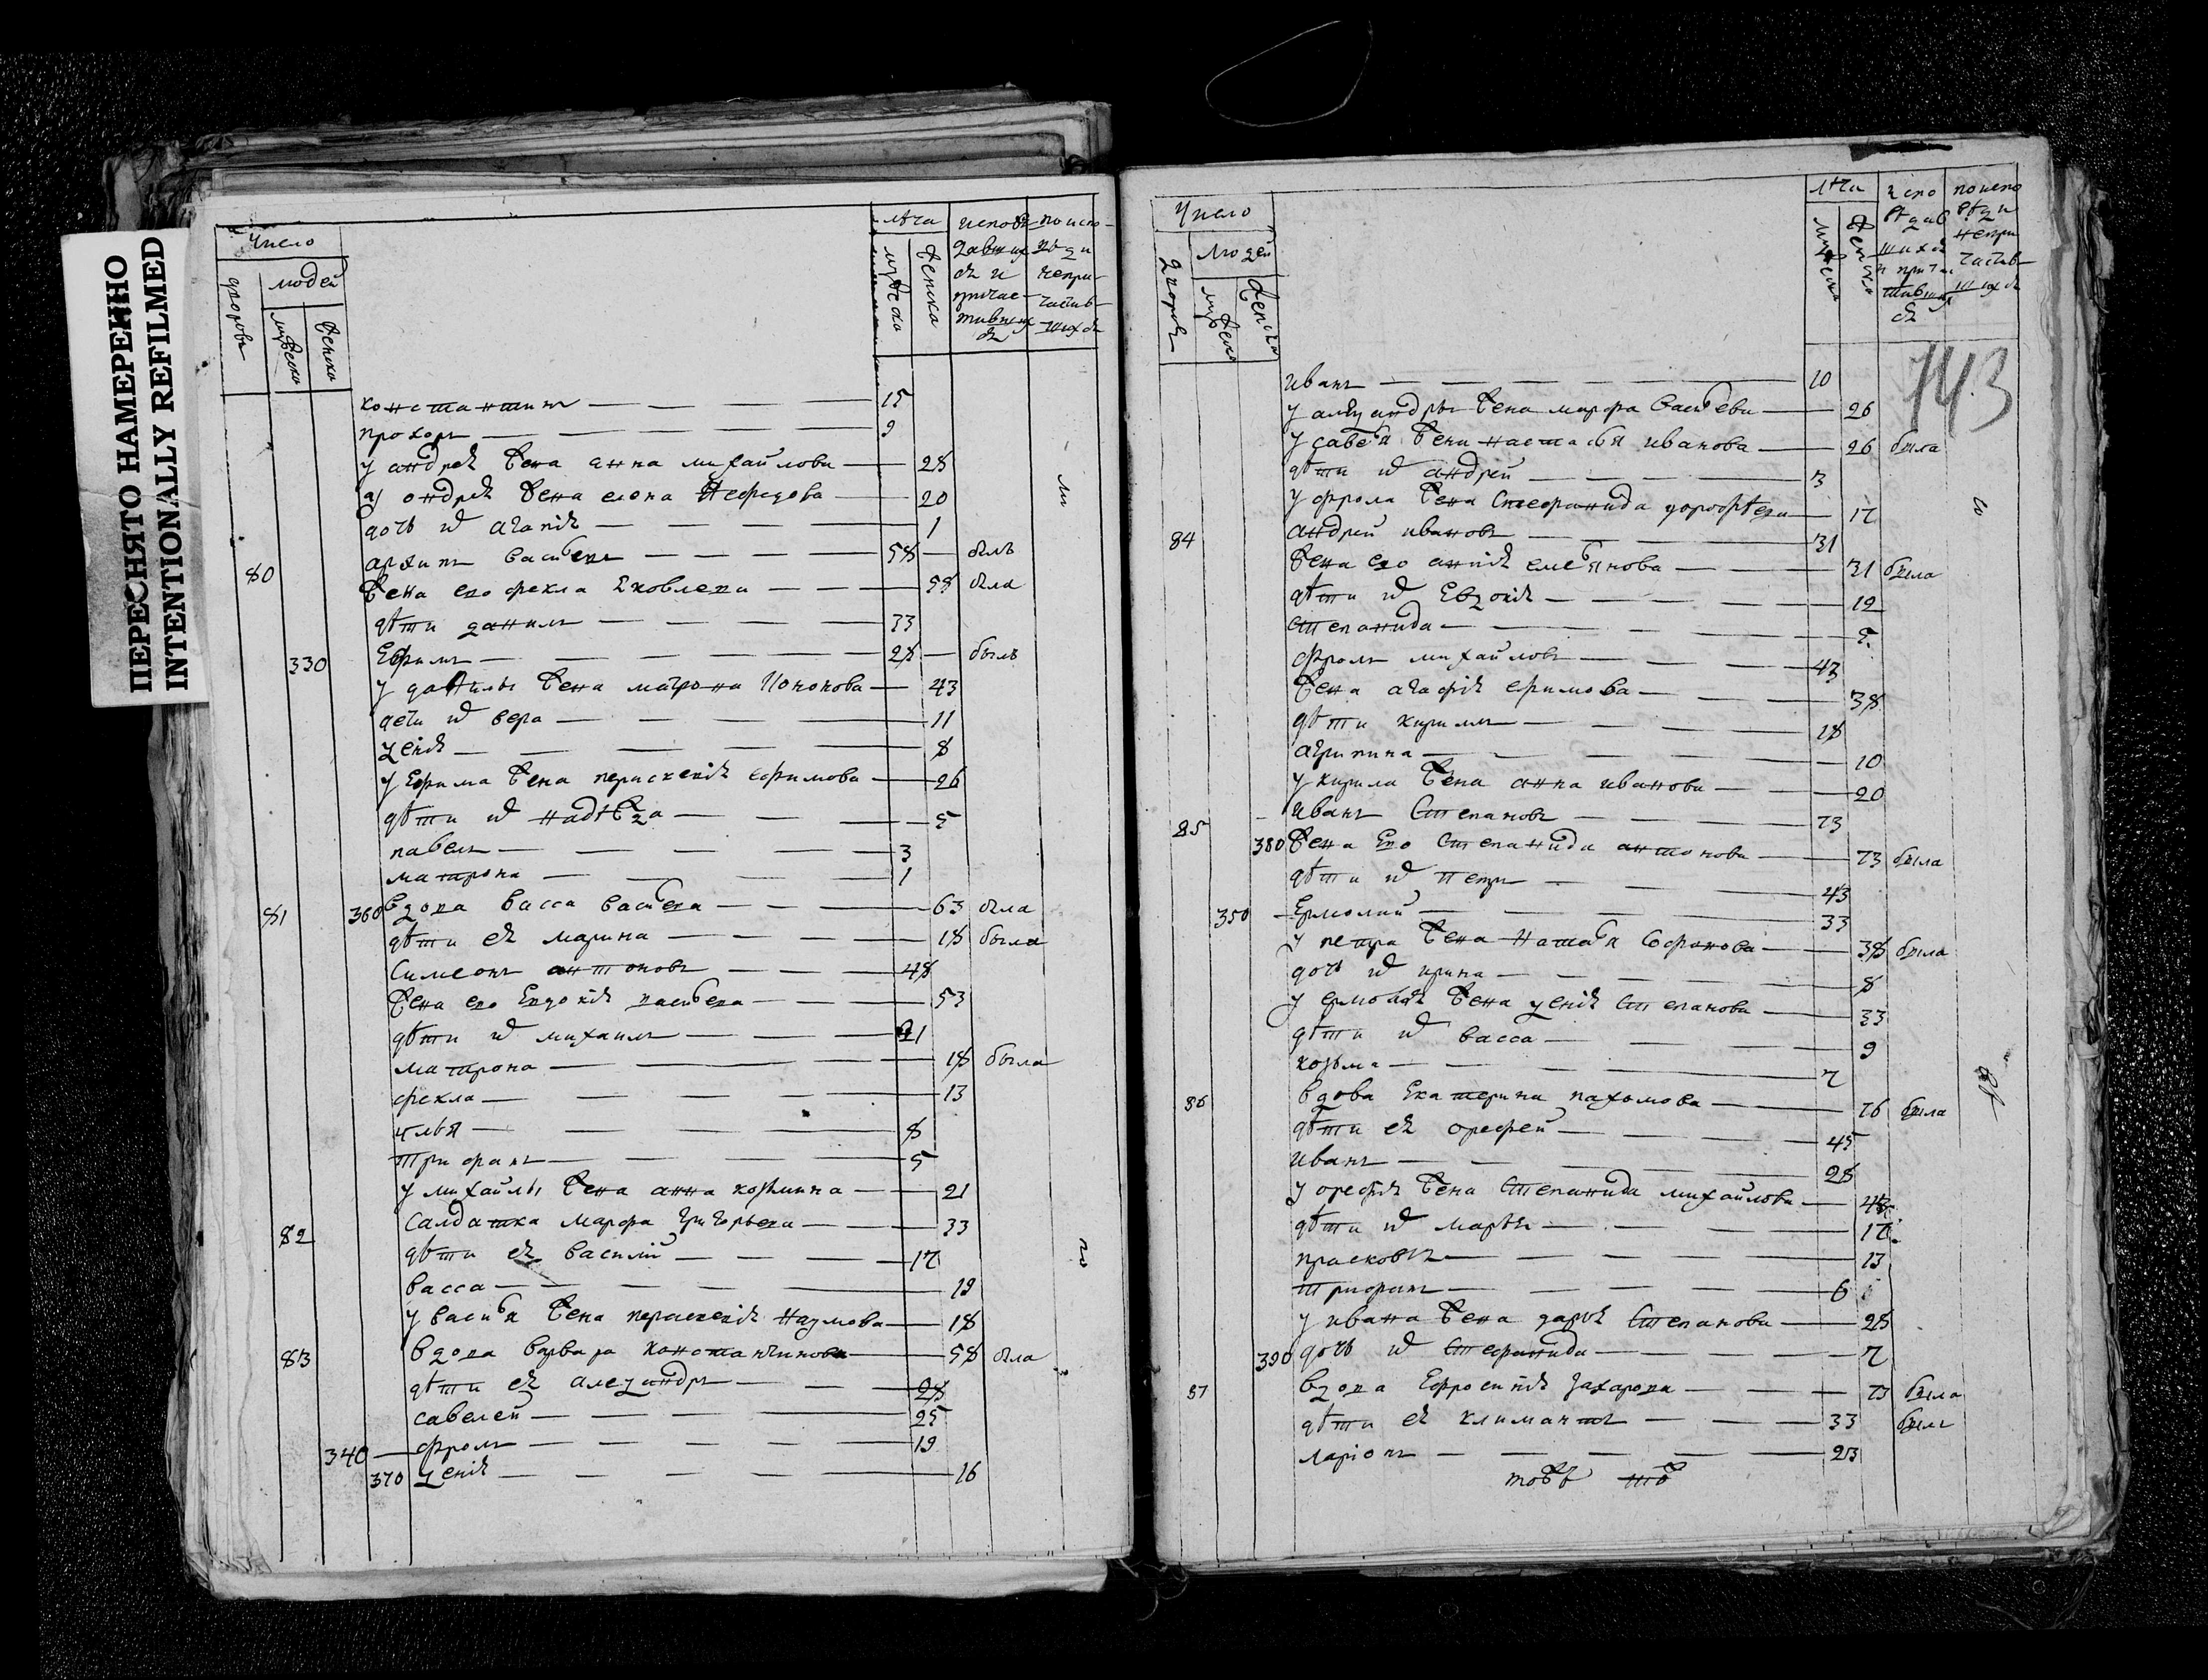 ПЕРЕСНЯТО НАМЕРЕННО
INTENTIONALLY REFILMED
Число
дворовъ
людей
мужеска
женска
лѣта
мужеска
женска
исповѣ-
давших
ся и
причас-
тивших
ся
по испо-
вѣди
непри-
частив-
шихся
константинъ 15
прохоръ 9
у андрея жена анна михайлова 28
у андрея жена елена нефедова 20
дочь их агапия 1
80 архипъ васильевъ 58 былъ
жена его фекла яковлева 58 была
дѣти данилъ 33
330 Ефимъ 28 былъ
у данилы жена матрона 43
дети их вера 11
ксения 8
у Ефима жена параскевия ефимова 26
дѣти их надежда 5
павелъ 3
матрона 1
81 360 вдова васса васильева 63 была
дѣти ея марина 18 была
симеонъ антоновъ 48
жена его Евдокия васильева 53
дѣти их михаилъ 21
матрона 18 была
фекла 13
илья 8
трифанъ 5
у михайлы жена анна козмина 21
82 салдатка марфа григорьева 33
дѣти ея василий 17
васса 19
у василья жена параскевия наумова 18
83 вдова варвара константинова 58 была
дѣти ея александръ 28
савелей 25
340 фролъ 19
370 ксения 16
Число
дворовъ
людей
мужеска
женска
лѣта
мужеска
женска
испо
вѣдав
шихся
и прича
стивших
ся
по испо
вѣди
непри
частив
шихся
143
иванъ 10
у александры жена марфа васильева 26
у савелья жена настасья иванова 26 была
дѣти их андрей 3
у фрола жена стефанида дорофѣева 17
84 андрей ивановъ 31
жена его анния емельянова 31 была
дѣти их Евдокия 12
степанида 5
фролъ михайловъ 43
жена агафия ефимова 38
дѣти кирилъ 18
агрипина 10
у кирила жена анна иванова 20
85 иванъ степановъ 73
380 жена Его степанида антонова 73 была
дѣти их петръ 43
350 Ермолай 33
у петра жена наталья софонова 38 была
дочь их ирина 8
у ермолая жена ксения степанова 33
дѣти их васса 9
козьма 7
86 вдова Екатерина пахомова 76 была
дѣти ея орефей 45
иванъ 28
у орефья жена степанида михайлова 48
дѣти их марья 17
прасковья 13
трифанъ 6
у ивана жена дарья степанова 28
390 дочь их стефанида 7
87 вдова Ефросиния захарова 73 была
дѣти ея климантъ 33 былъ
ларионъ 23